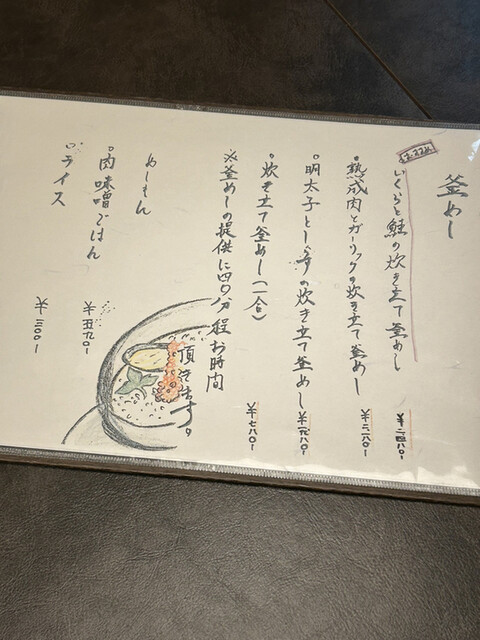 釜めし
おススメ
いくらと鮭の炊き立て釜めし
¥二四八〇-
・熟成肉とガーリックの炊き立て釜めし
¥二一八〇-
・明太子としらすの炊き立て釜めし
¥一九八〇-
・炊き立て釜めし(一合)
¥七八〇-
※釜めしの提供に四〇分程お時間
頂きます。
めしもん
・肉味噌ごはん
¥五九〇-
・ライス
¥三〇〇-